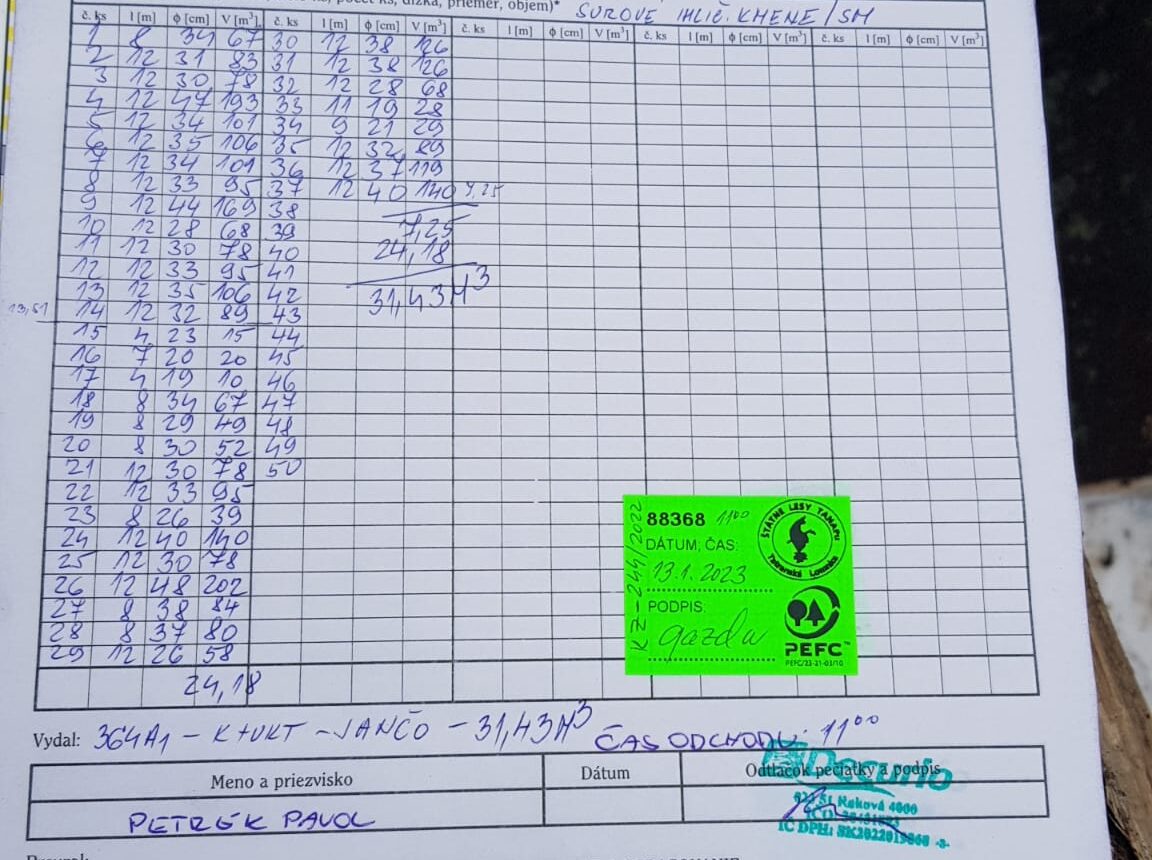 počet ks, dĺžka, priemer, objem)* SUROVÉ IHLIČ. KMENE / SM
č. ks l [m] ϕ [cm] V [m³] č. ks l [m] ϕ [cm] V [m³] č. ks l [m] ϕ [cm] V [m³] č. ks l [m] ϕ [cm] V [m³] č. ks l [m] ϕ [cm] V [m³]
1 8 34 67 30 12 38 126
2 12 31 83 31 12 38 126
3 12 30 78 32 12 28 68
4 12 47 193 33 11 19 28
5 12 34 101 34 9 21 29
6 12 35 106 35 12 32 89
7 12 34 101 36 12 37 119
8 12 33 95 37 12 40 140 7,25
9 12 44 169 38
10 12 28 68 39 7,25
11 12 30 78 40 24,18
12 12 33 95 41
13 12 35 106 42 31,43 M³
13,51 14 12 32 89 43
15 4 23 15 44
16 7 20 20 45
17 4 19 10 46
18 8 34 67 47
19 8 29 49 48
20 8 30 52 49
21 12 30 78 50
22 12 33 95
23 8 26 39
24 12 40 140
25 12 30 78
26 12 48 202
27 8 38 84
28 8 37 80
29 12 26 58
24,18
KZ-244/2022
88368 11⁰⁰
DÁTUM; ČAS:
13.1.2023
PODPIS:
gazda
ŠTÁTNE LESY TANAPU
Tatranská Lomnica
PEFC™
PEFC/23-21-03/10
Vydal: 364A1 - - JANČO - 31,43 M³ ČAS ODCHODU: 11⁰⁰
Meno a priezvisko Dátum Odtlačok pečiatky a podpis
PETRÉK PAVOL
Decurio
Raková 4000
IČO
IČ DPH: -3-